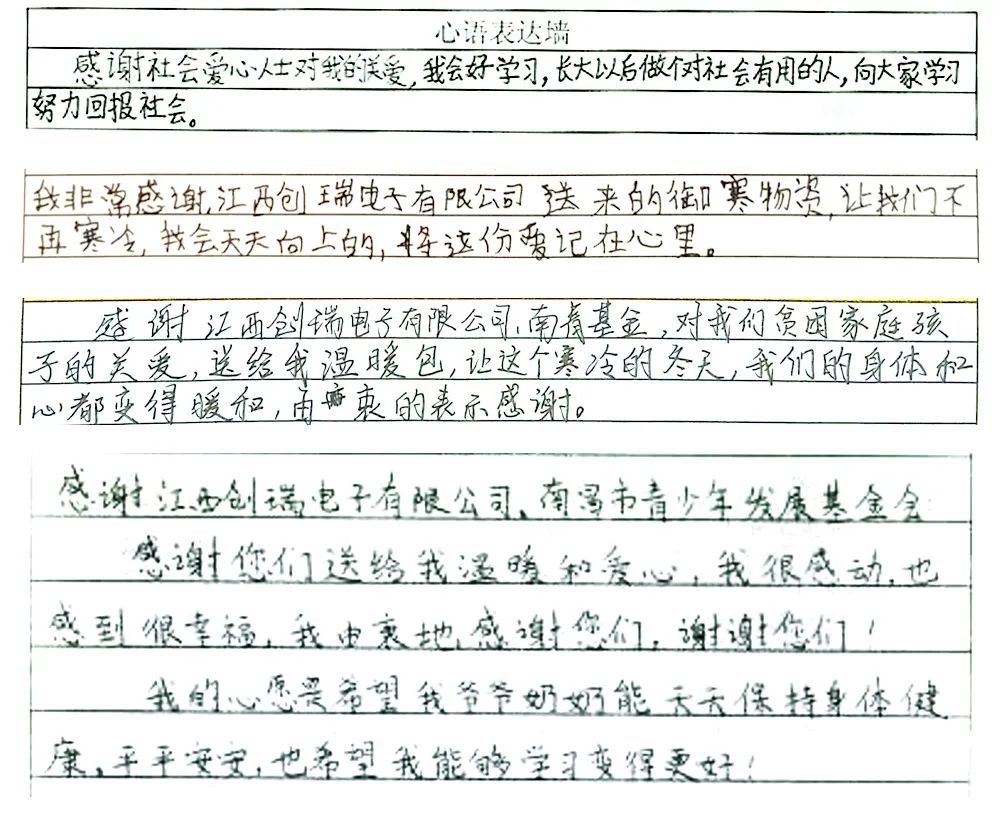 心语表达墙
感谢社会爱心人士对我的关爱,我会好学习,长大以后做个对社会有用的人,向大家学习
努力回报社会。
我非常感谢,江西创瑞电子有限公司送来的御寒物资,让我们不
再寒冷,我会天天向上的,将这份爱记在心里。
感谢江西创瑞电子有限公司、南青基金,对我们贫困家庭孩
子的关爱,送给我温暖包,让这个寒冷的冬天,我们的身体和
心都变得暖和,由衷的表示感谢。
感谢江西创瑞电子有限公司、南昌市青少年发展基金会
感谢您们送给我温暖和爱心,我很感动,也
感到很幸福,我由衷地感谢您们,谢谢您们!
我的心愿是希望我爷爷奶奶能天天保持身体健
康,平平安安,也希望我能够学习变得更好!